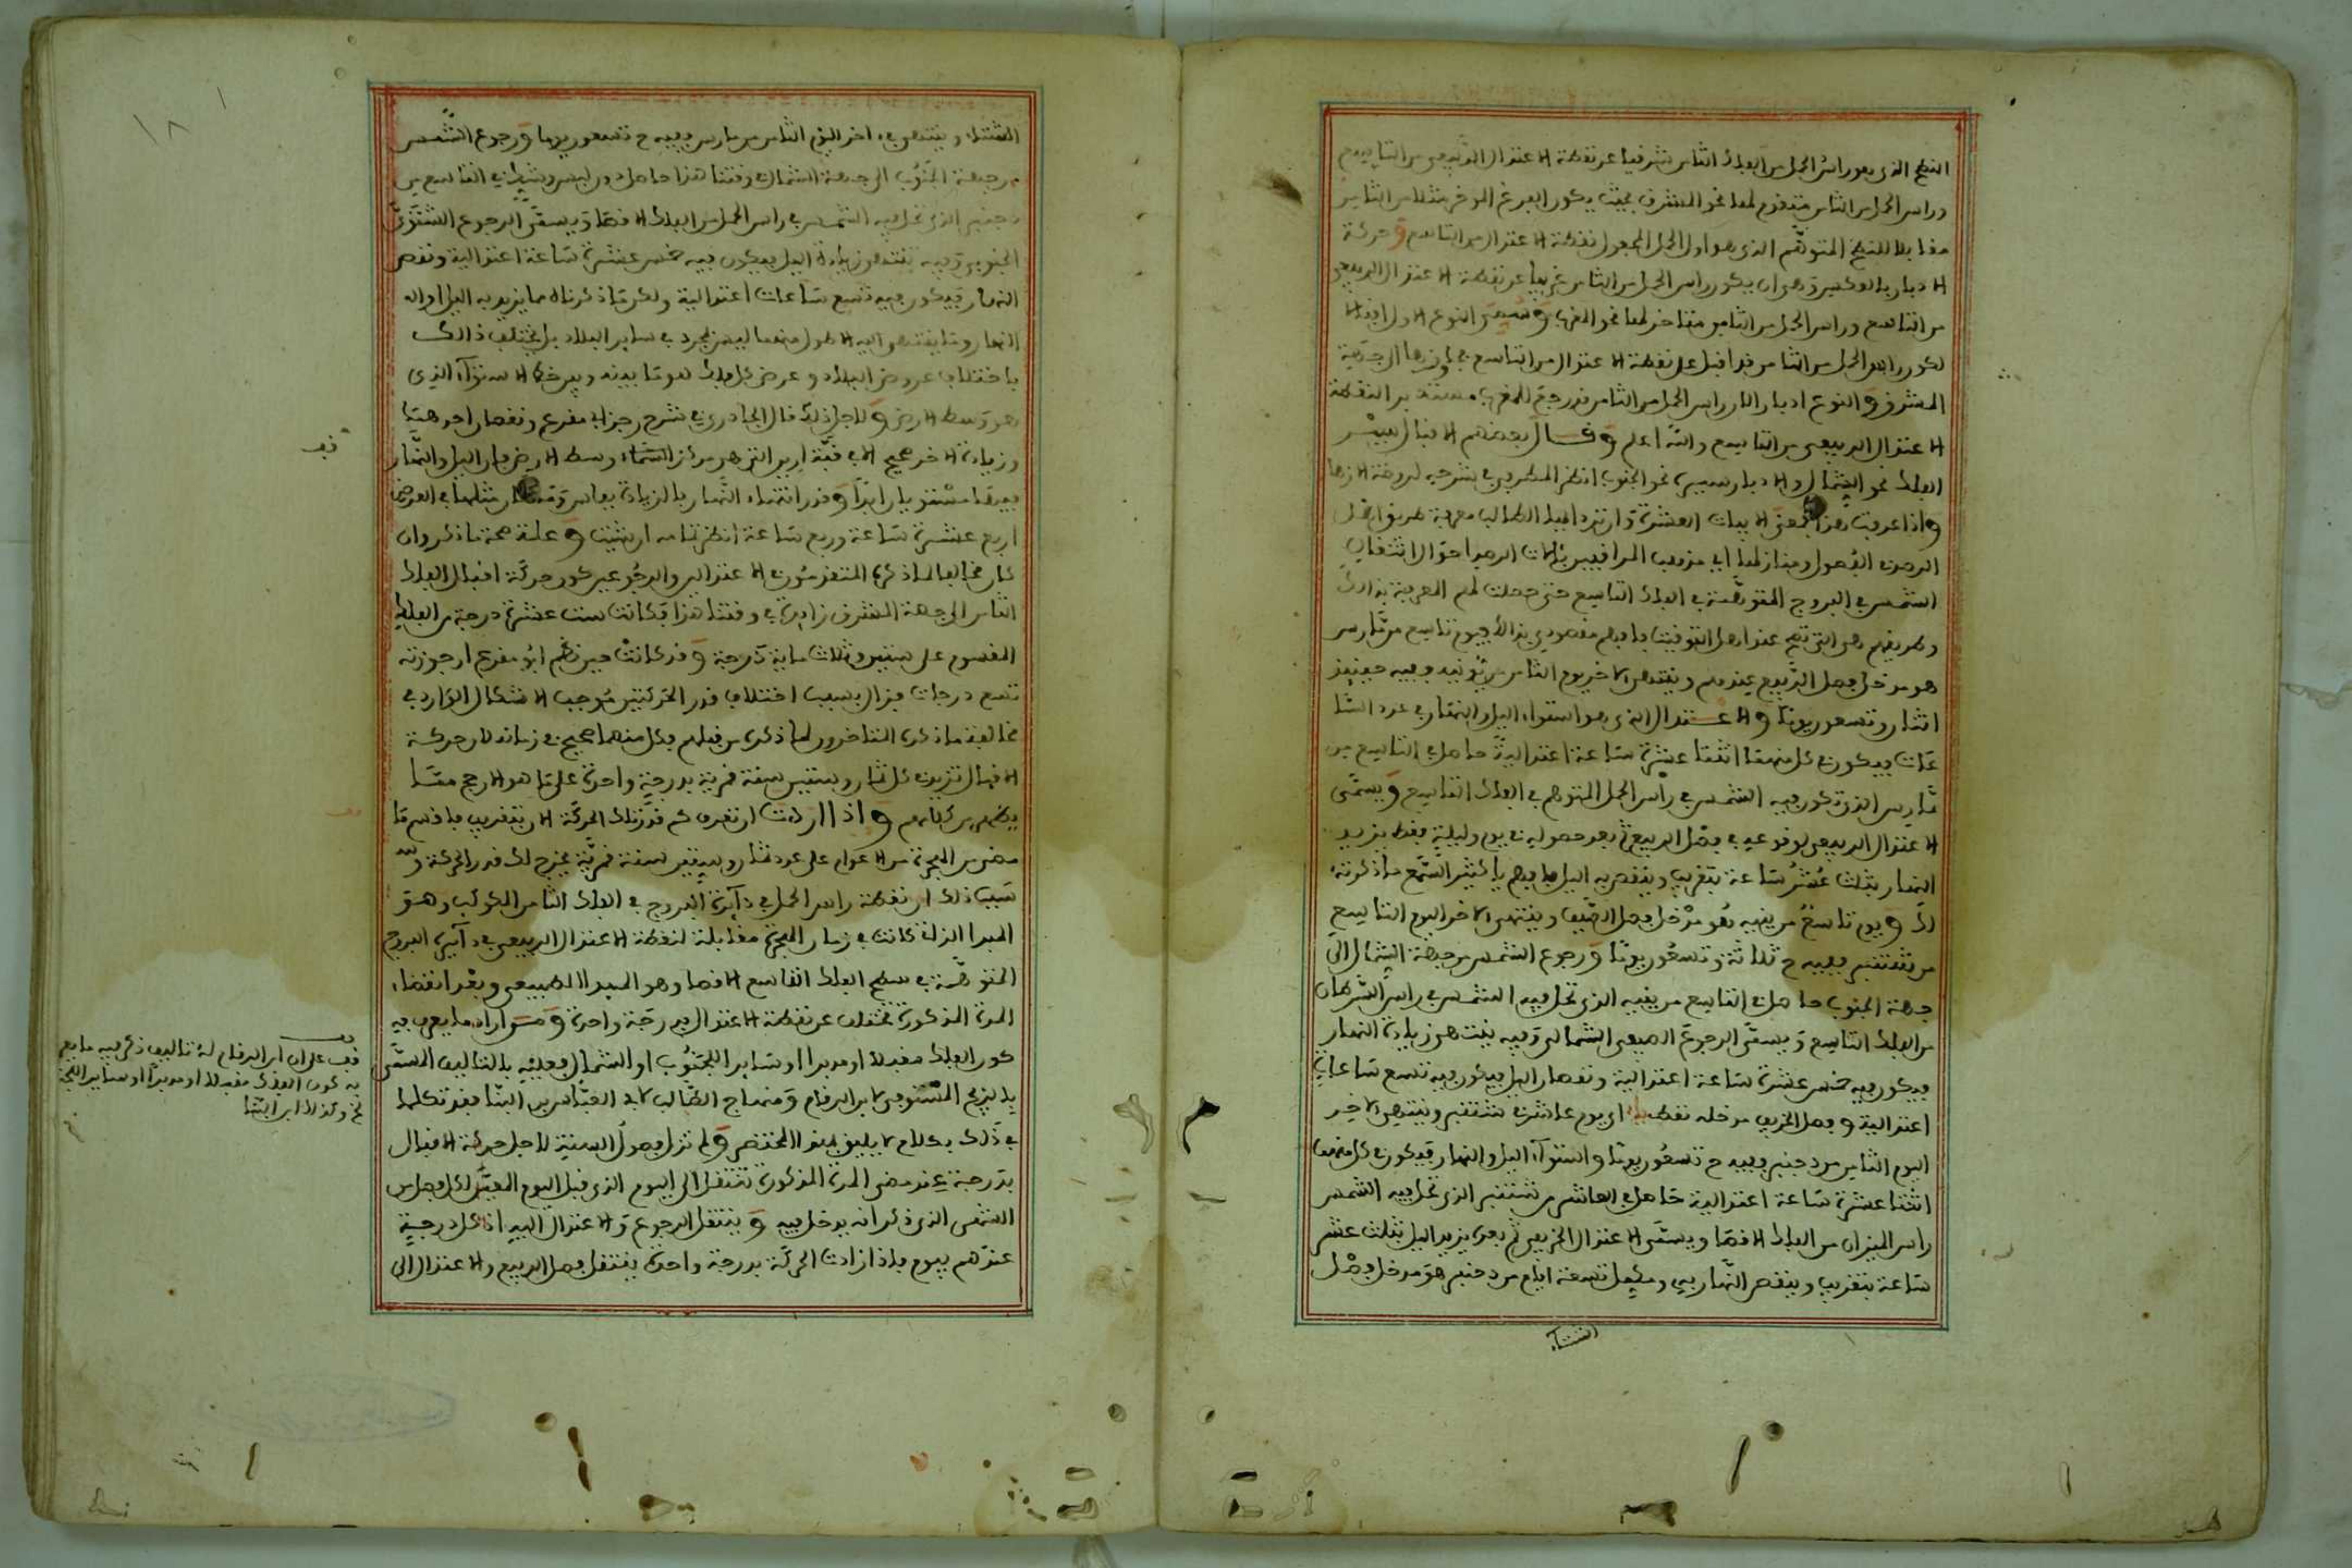 النطح الذي هو رأس الحمل من الفلك الثامن شرقيا عن نقطة الاعتدال الربيعي من التاسع
وراس الحمل من الثامن متقدم لها نحو المشرق بحيث يكون الفرغ المؤخر مثلا من الثامن
مقابلا للنطح المتوهم الذي هو اول الحمل المجعول نقطة الاعتدال من التاسع وحركة
الادبار بالعكس وهي ان يكون راس الحمل من الثامن غربيا عن نقطة الاعتدال الربيعي
من التاسع وراس الحمل من الثامن متاخر لها نحو المغرب وسمي النوع الاول اقبالا
لكون راس الحمل من الثامن قد اقبل على نقطة الاعتدال من التاسع الى جهة
المشرق والنوع ادبارا لان راس الحمل من الثامن قد رجع للمغرب مستدبر النقطة
الاعتدال الربيعي من التاسع والله اعلم وقال بعضهم الاقبال سير
الفلك نحو الشمال والادبار سيره نحو الجنوب انظر المطرفي في شرحه لروضة الازهار
واذا عرفت هذا معنى الابيات العشرة وان تزد ايها الطالب معرفة طريق
الرصد الفصول ومنازلها اي مذهب المراقبين بالات الرصد احوال انتقال
الشمس في البروج المتوهمة في الفلك التاسع حتى حصلت لهم المعرفة بذلك
وطريقهم هي التي تصح عند اهل التوقيت فافهم مقصودي بذلك فيوم تاسع من مارس
هو مدخل فصل الربيع عندهم وينتهي لاخر يوم الثامن من يونيه وفيه حينئذ
اثنان وتسعون يوما والاعتدال الذي هو استواء الليل والنهار في عدد السا
عات فيكون في كل منهما اثنتا عشرة ساعة اعتدالية حاصل في التاسع من
مارس الذي تكون فيه الشمس في راس الحمل المتوهم في الفلك التاسع ويسمى
الاعتدال الربيعي لوقوعه في فصل الربيع ثم بعد حصوله في يوم وليلة فقط يزيد
النهار بثلث عشر ساعة بتقريب وينقص به الليل فافهم يا كثير السمع ما ذكرته
لك ويوم تاسع من ينيه هو مدخل فصل الصيف وينتهي لاخر اليوم التاسع
من شتنبر ففيه ح ثلاثة وتسعون يوما ورجوع الشمس من جهة الشمال الى
جهة الجنوب حاصل في التاسع من ينيه الذي تحل فيه الشمس في راس السرطان
من الفلك التاسع ويسمى الرجوع الصيفي الشمالي وفيه ينتهي زيادة النهار
فيكون فيه خمس عشرة ساعة اعتدالية ونقصان الليل فيكون فيه تسع ساعات
اعتدالية وفصل الخريف مدخله نقطه اي يوم عاشر شتنبر وينتهي لاخر
اليوم الثامن من دجنبر وفيه ح تسعون يوما واستواء الليل والنهار فيكون في كل منهما
اثنتا عشرة ساعة اعتدالية حاصل في العاشر من شتنبر الذي تحل فيه الشمس
راس الميزان من الفلك الاقصا ويسمى الاعتدال الخريفي ثم بعده يزيد الليل بثلث عشر
ساعة بتقريب وينقص النهار به وتسعة ايام من دجنبر هو مدخل فصل
الشتاء
١٨
الشتاء وينتهي في اخر اليوم الثامن من مارس وفيه ح تسعون يوما ورجوع الشمس
من جهة الجنوب الى جهة الشمال وقتنا هذا حاصل في التاسع من
دجنبر الذي تحل فيه الشمس في راس من الفلك الاقصا ويسمى الرجوع الشتوي
الجنوبي وفيه ينتهي زيادة الليل فيكون فيه خمس عشرة ساعة اعتدالية ونقص
النهار فيكون فيه تسع ساعات اعتدالية ولكن ما ذكرناه مما يزيد به الليل او
النهار وما ينتهي اليه الطول منهما ليس بمطرد في سائر البلاد بل يختلف ذالك
باختلاف عروض البلاد وعرض كل بلد هو ما بينه وبين خط الاستواء الذي
هو وسط الارض ولاجل ذلك قال الجادري في شرح رجز ابي مقرع ونقصان احدهما
وزيادة الاخر صحيح الا في قبة ارين التي هي مركز السماء وسط الارض فان الليل والنهار
فيها مستويان ابدا وقدر انتهاء النهار بالزيادة بفاس وما كان مثلها في العرض
اربع عشرة ساعة وربع ساعة انظر تمامه ان شئت وعلة صحة ما ذكر وان
كان مخالفا لما ذكره المتقدمون في الاعتدالين والرجوعين كون حركة اقبال الفلك
الثامن الى جهة المشرق زائدة في وقتنا هذا فكانت ست عشرة درجة من الفلك
المقسوم على ستين وثلاث ماية درجة وقد كانت حين نظم ابو مقرع ارجوزته
تسع درجات فزال بسبب اختلاف قدر الحركتين موجب الاشكال الوارد في
مخالفة ما ذكره المتاخرون لما ذكره من قبلهم فكل منهما صحيح في زمانه لان حركة
الاقبال تزيد في كل ثمان وستين سنة قمرية بدرجة واحدة على ما هو الارجح مما
يظهر من كلامهم واذا اردت ان تعرف كم قدر تلك الحركة الان بتقريب فاقسم ما
مضى من الهجرة من الاعوام على عدد ثمان وستين سنة قمرية يخرج لك قدر الحركة و
سبب ذلك ان نقطة راس الحمل في دآئرة البروج في الفلك الثامن الكوكب وهو
المبدا الذاتي كانت في زمان الهجرة مقابلة لنقطة الاعتدال الربيعي في دآئرة البروج
المتوهمة في سطح الفلك التاسع الاقصا وهو المبدا الطبيعي وبعد انقضاء
المدة المذكورة تختلف عن نقطة الاعتدال بدرجة واحدة ومن اراد ما يعرف به
كون الفلك مقبلا او مدبرا او سايرا للجنوب او الشمال فعليه بالتاليف المسمى
بالزيج المستوفى لابن الرقام ومنهاج الطالب لابي العباس بن البنا فقد تكلما
في ذلك بكلام لا يليق بهذا المختصر ولم تزل فصول السنة لاجل حركة الاقبال
بدرجة عند مضي المدة المذكورة تنتقل الى اليوم الذي قبل اليوم المعين لكل فصل من
الشمس الذي ذكر انه يدخل فيه وينتقل الرجوع والاعتدال اليه اذ كل درجة
عندهم بيوم فاذا زادت الحركة بدرجة واحدة ينتقل فصل الربيع والاعتدال الى
قف
قف على ان ابن الرقام له تاليف ذكر فيه ما يعرف
به كون الفلك مقبلا او مدبرا او سايرا للجنوب
الخ وكذلك ابن البنا